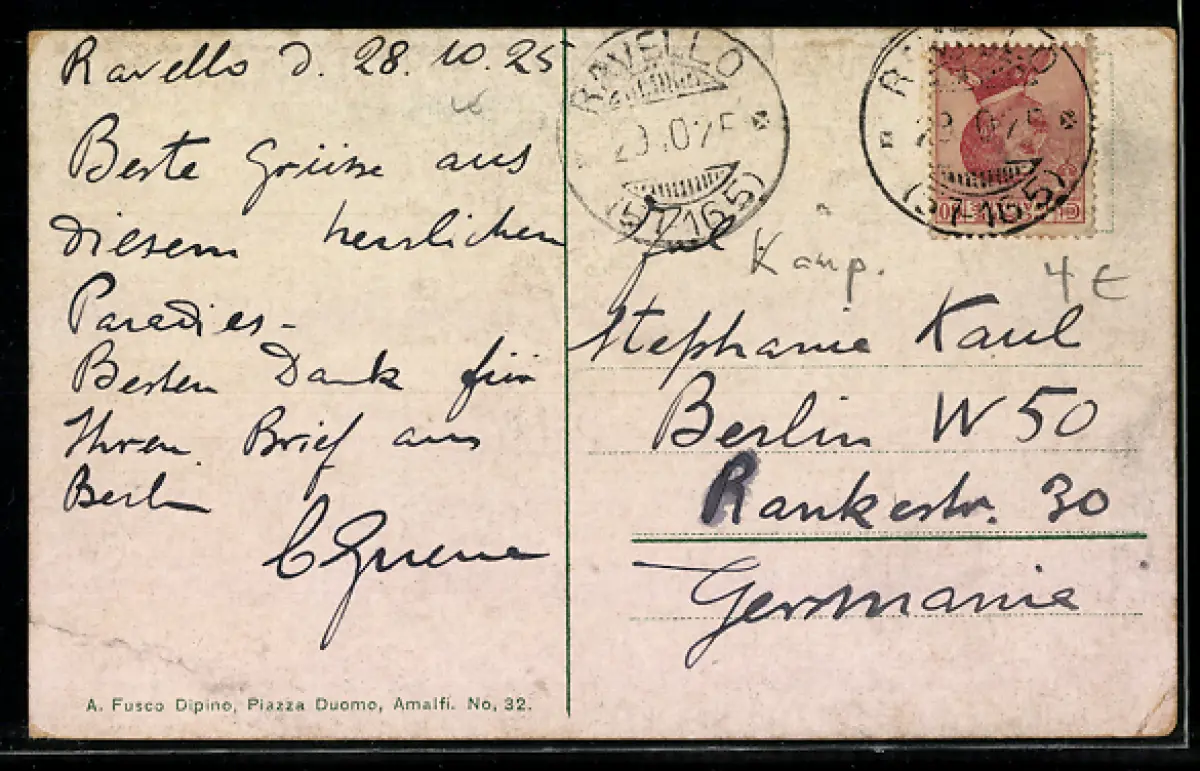 Ravello d. 28. 10. 25
Beste Grüsse aus
diesem herrlichen
Paradies -
Besten Dank für
Ihren Brief aus
Berlin
A. Fusco Dipino, Piazza Duomo, Amalfi. No, 32.
RAVELLO
(57.165)
RAVELLO
(57.165)
Kamp.
4 €
Stephanie Kaul
Berlin W 50
Rankestr. 30
Germania